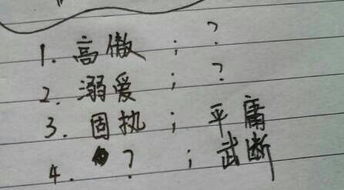 1. 高傲 ; ?
2. 溺爱 ; ?
3. 固执 ; 平庸
4. ? ; 武断